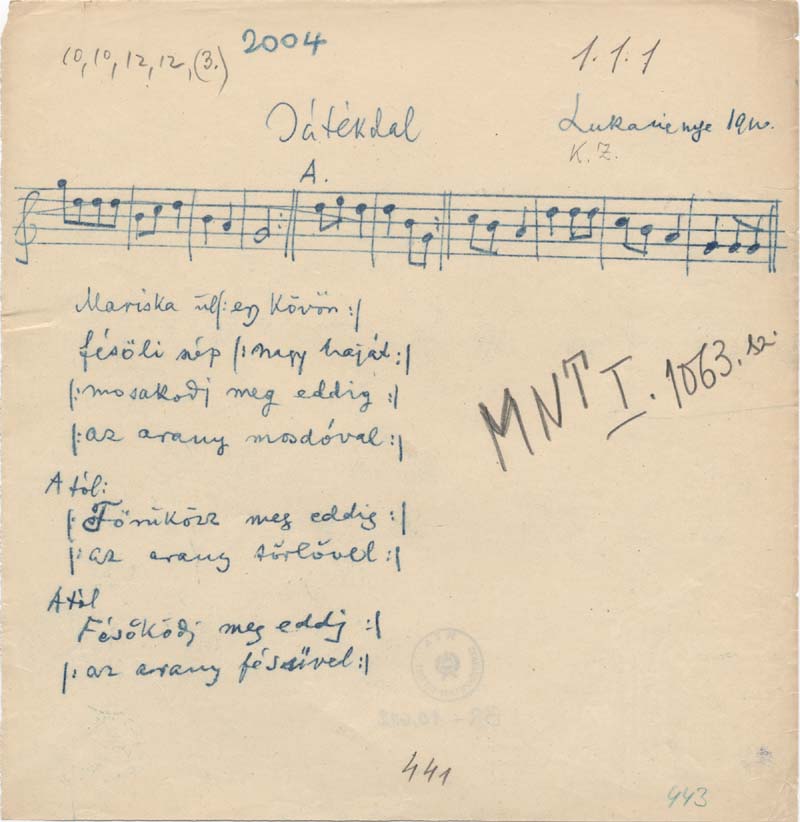 10, 10, 12, 12, (3.)
2004
1. 1. 1
Játékdal
Lukanenye 19
K. Z.
A.
Mariska ül |: egy kövön :|
fésöli szép |: nagy haját :|
|: mosakodj meg eddig :|
|: az arany mosdóval :|
A tól:
|: Törűközz meg eddig :|
|: az arany törlővel :|
A tól
Fésőködj meg eddj :|
|: az arany fésűvel :|
MNT I. 1063. sz.
441
443